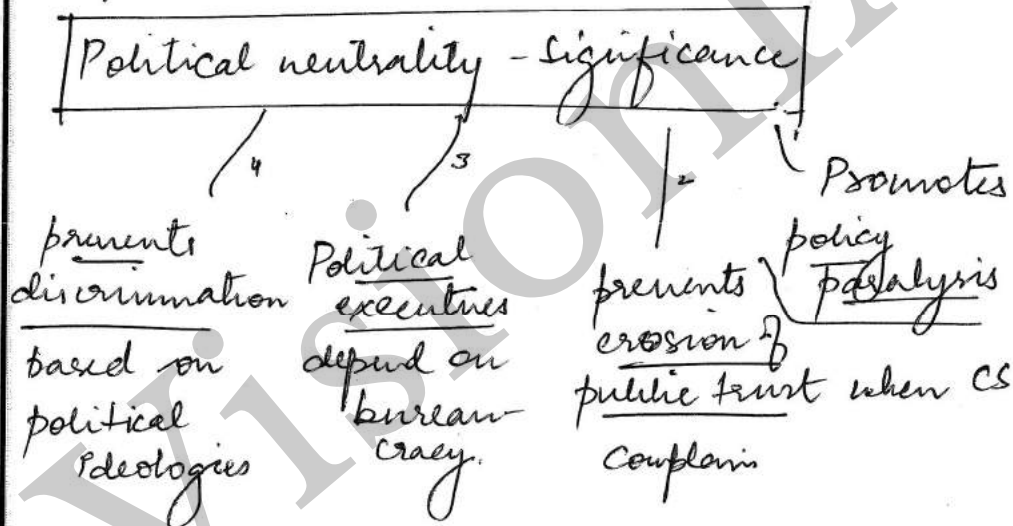 Political neutrality - Significance
4
prevents
discrimination
based on
political
Ideologies
3
Political
executives
depend on
bureau-
cracy.
2
prevents
erosion of
public trust when CS
complain
1
Promotes
policy
paralysis
Vision